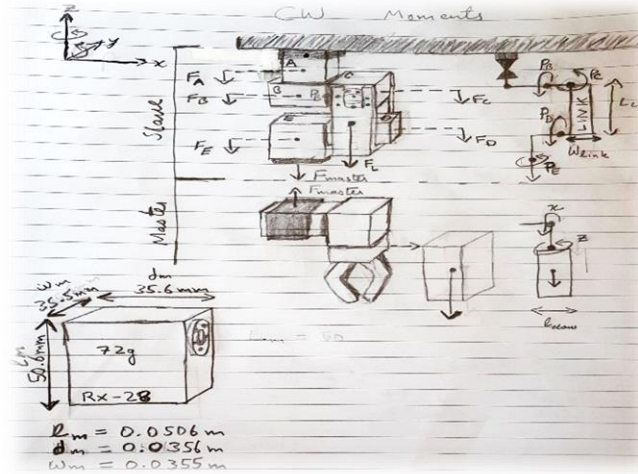 CW Moments
Z
y
x
Slave
Master
A
B
C
F_A
F_B
F_E
F_C
F_D
F_L
Fmaster
Fmaster
P_B
P_C
P_D
P_E
LINK
L_L
W_Link
x
z
wm
35.5mm
dm
35.6mm
50.6mm
72g
Rx-28
l_m = 0.0506 m
d_m = 0.0356 m
w_m = 0.0355 m